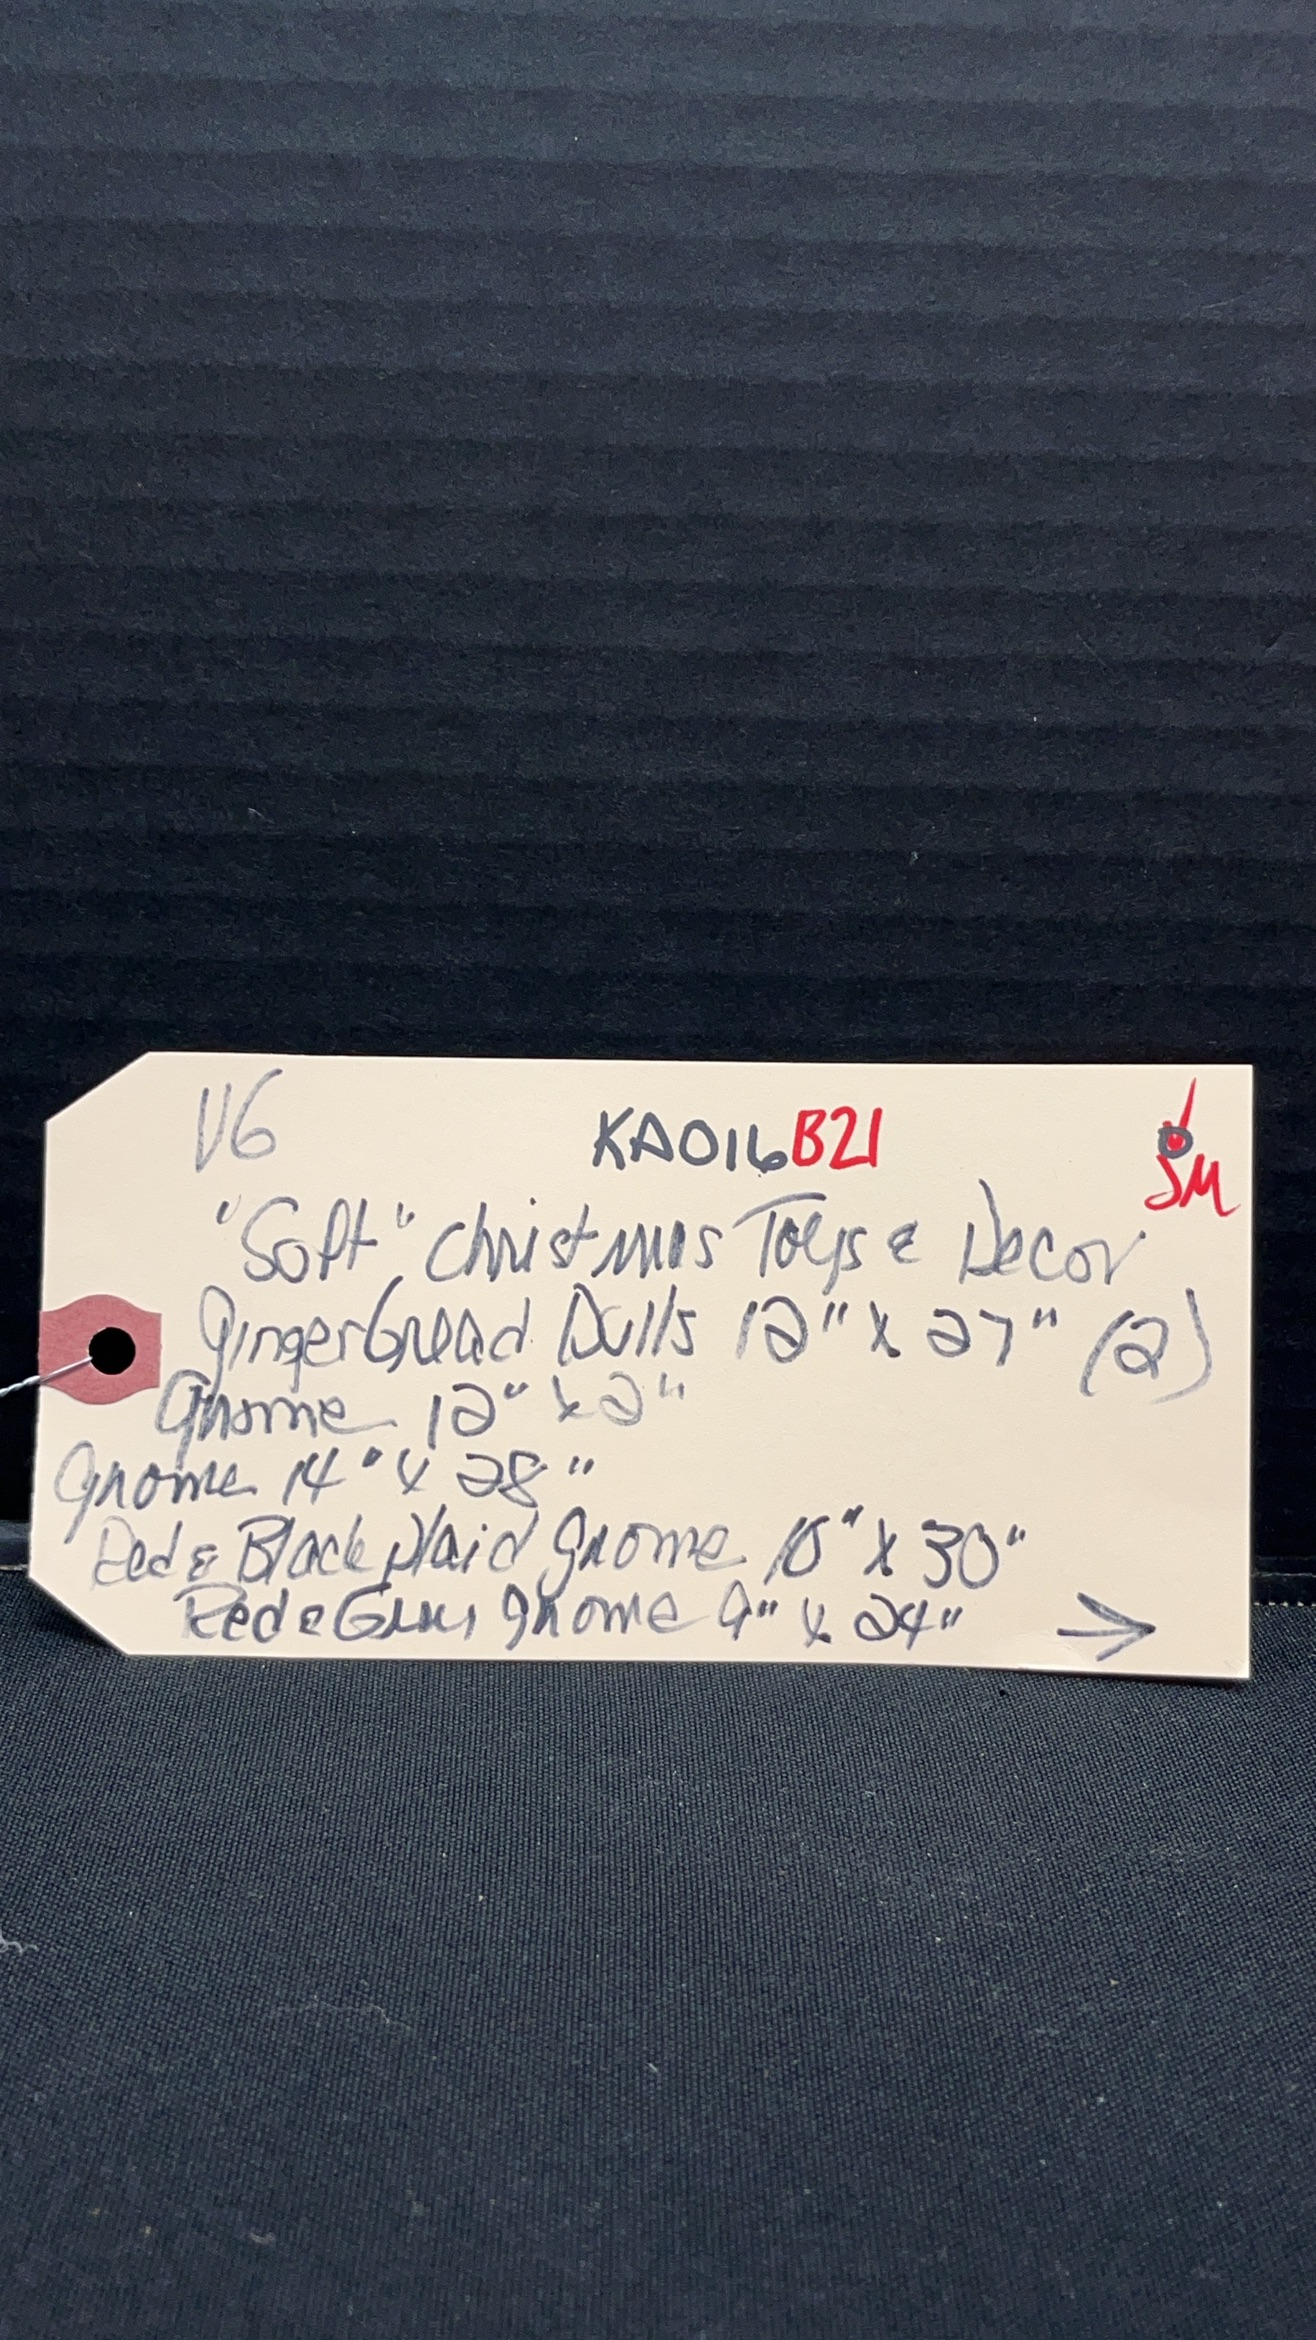 V6 KA016B21
SM
"Soft" Christmas Toys & Decor
Gingerbread Dolls 12" x 27" (2)
Gnome 12" x 2"
Gnome 14" x 28"
Red & Black Plaid Gnome 10" x 30"
Red & Gnome 9" x 24" →